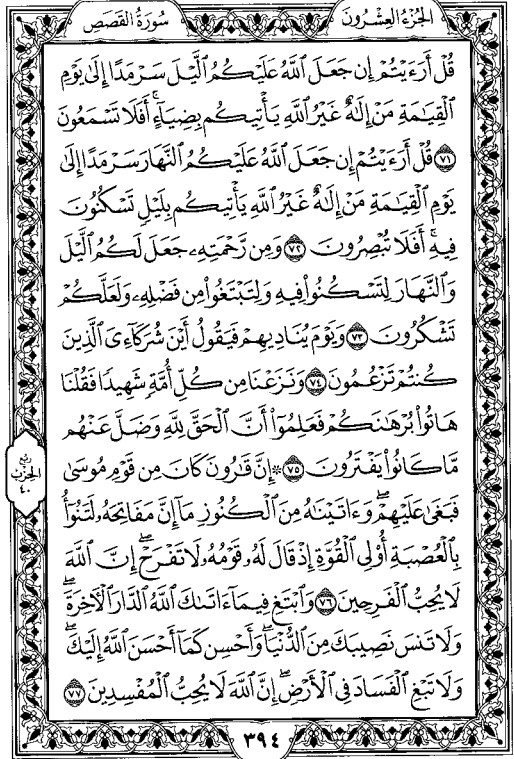 الجُزْءُ العِشْرُونَ
سُورَةُ القَصَصِ
قُلْ أَرَءَيْتُمْ إِن جَعَلَ ٱللَّهُ عَلَيْكُمُ ٱلَّيْلَ سَرْمَدًا إِلَىٰ يَوْمِ
ٱلْقِيَٰمَةِ مَنْ إِلَٰهٌ غَيْرُ ٱللَّهِ يَأْتِيكُم بِضِيَآءٍ ۖ أَفَلَا تَسْمَعُونَ
٧١ قُلْ أَرَءَيْتُمْ إِن جَعَلَ ٱللَّهُ عَلَيْكُمُ ٱلنَّهَارَ سَرْمَدًا إِلَىٰ
يَوْمِ ٱلْقِيَٰمَةِ مَنْ إِلَٰهٌ غَيْرُ ٱللَّهِ يَأْتِيكُم بِلَيْلٍ تَسْكُنُونَ
فِيهِ ۖ أَفَلَا تُبْصِرُونَ ٧٢ وَمِن رَّحْمَتِهِۦ جَعَلَ لَكُمُ ٱلَّيْلَ
وَٱلنَّهَارَ لِتَسْكُنُوا۟ فِيهِ وَلِتَبْتَغُوا۟ مِن فَضْلِهِۦ وَلَعَلَّكُمْ
تَشْكُرُونَ ٧٣ وَيَوْمَ يُنَادِيهِمْ فَيَقُولُ أَيْنَ شُرَكَآءِىَ ٱلَّذِينَ
كُنتُمْ تَزْعُمُونَ ٧٤ وَنَزَعْنَا مِن كُلِّ أُمَّةٍ شَهِيدًا فَقُلْنَا
هَاتُوا۟ بُرْهَٰنَكُمْ فَعَلِمُوٓا۟ أَنَّ ٱلْحَقَّ لِلَّهِ وَضَلَّ عَنْهُم
مَّا كَانُوا۟ يَفْتَرُونَ ٧٥ ۞ إِنَّ قَٰرُونَ كَانَ مِن قَوْمِ مُوسَىٰ
فَبَغَىٰ عَلَيْهِمْ ۖ وَءَاتَيْنَٰهُ مِنَ ٱلْكُنُوزِ مَآ إِنَّ مَفَاتِحَهُۥ لَتَنُوٓأُ
بِٱلْعُصْبَةِ أُو۟لِى ٱلْقُوَّةِ إِذْ قَالَ لَهُۥ قَوْمُهُۥ لَا تَفْرَحْ ۖ إِنَّ ٱللَّهَ
لَا يُحِبُّ ٱلْفَرِحِينَ ٧٦ وَٱبْتَغِ فِيمَآ ءَاتَىٰكَ ٱللَّهُ ٱلدَّارَ ٱلْءَاخِرَةَ ۖ
وَلَا تَنسَ نَصِيبَكَ مِنَ ٱلدُّنْيَا ۖ وَأَحْسِن كَمَآ أَحْسَنَ ٱللَّهُ إِلَيْكَ ۖ
وَلَا تَبْغِ ٱلْفَسَادَ فِى ٱلْأَرْضِ ۖ إِنَّ ٱللَّهَ لَا يُحِبُّ ٱلْمُفْسِدِينَ ٧٧
ربع
الحزب
٤٠
٣٩٤